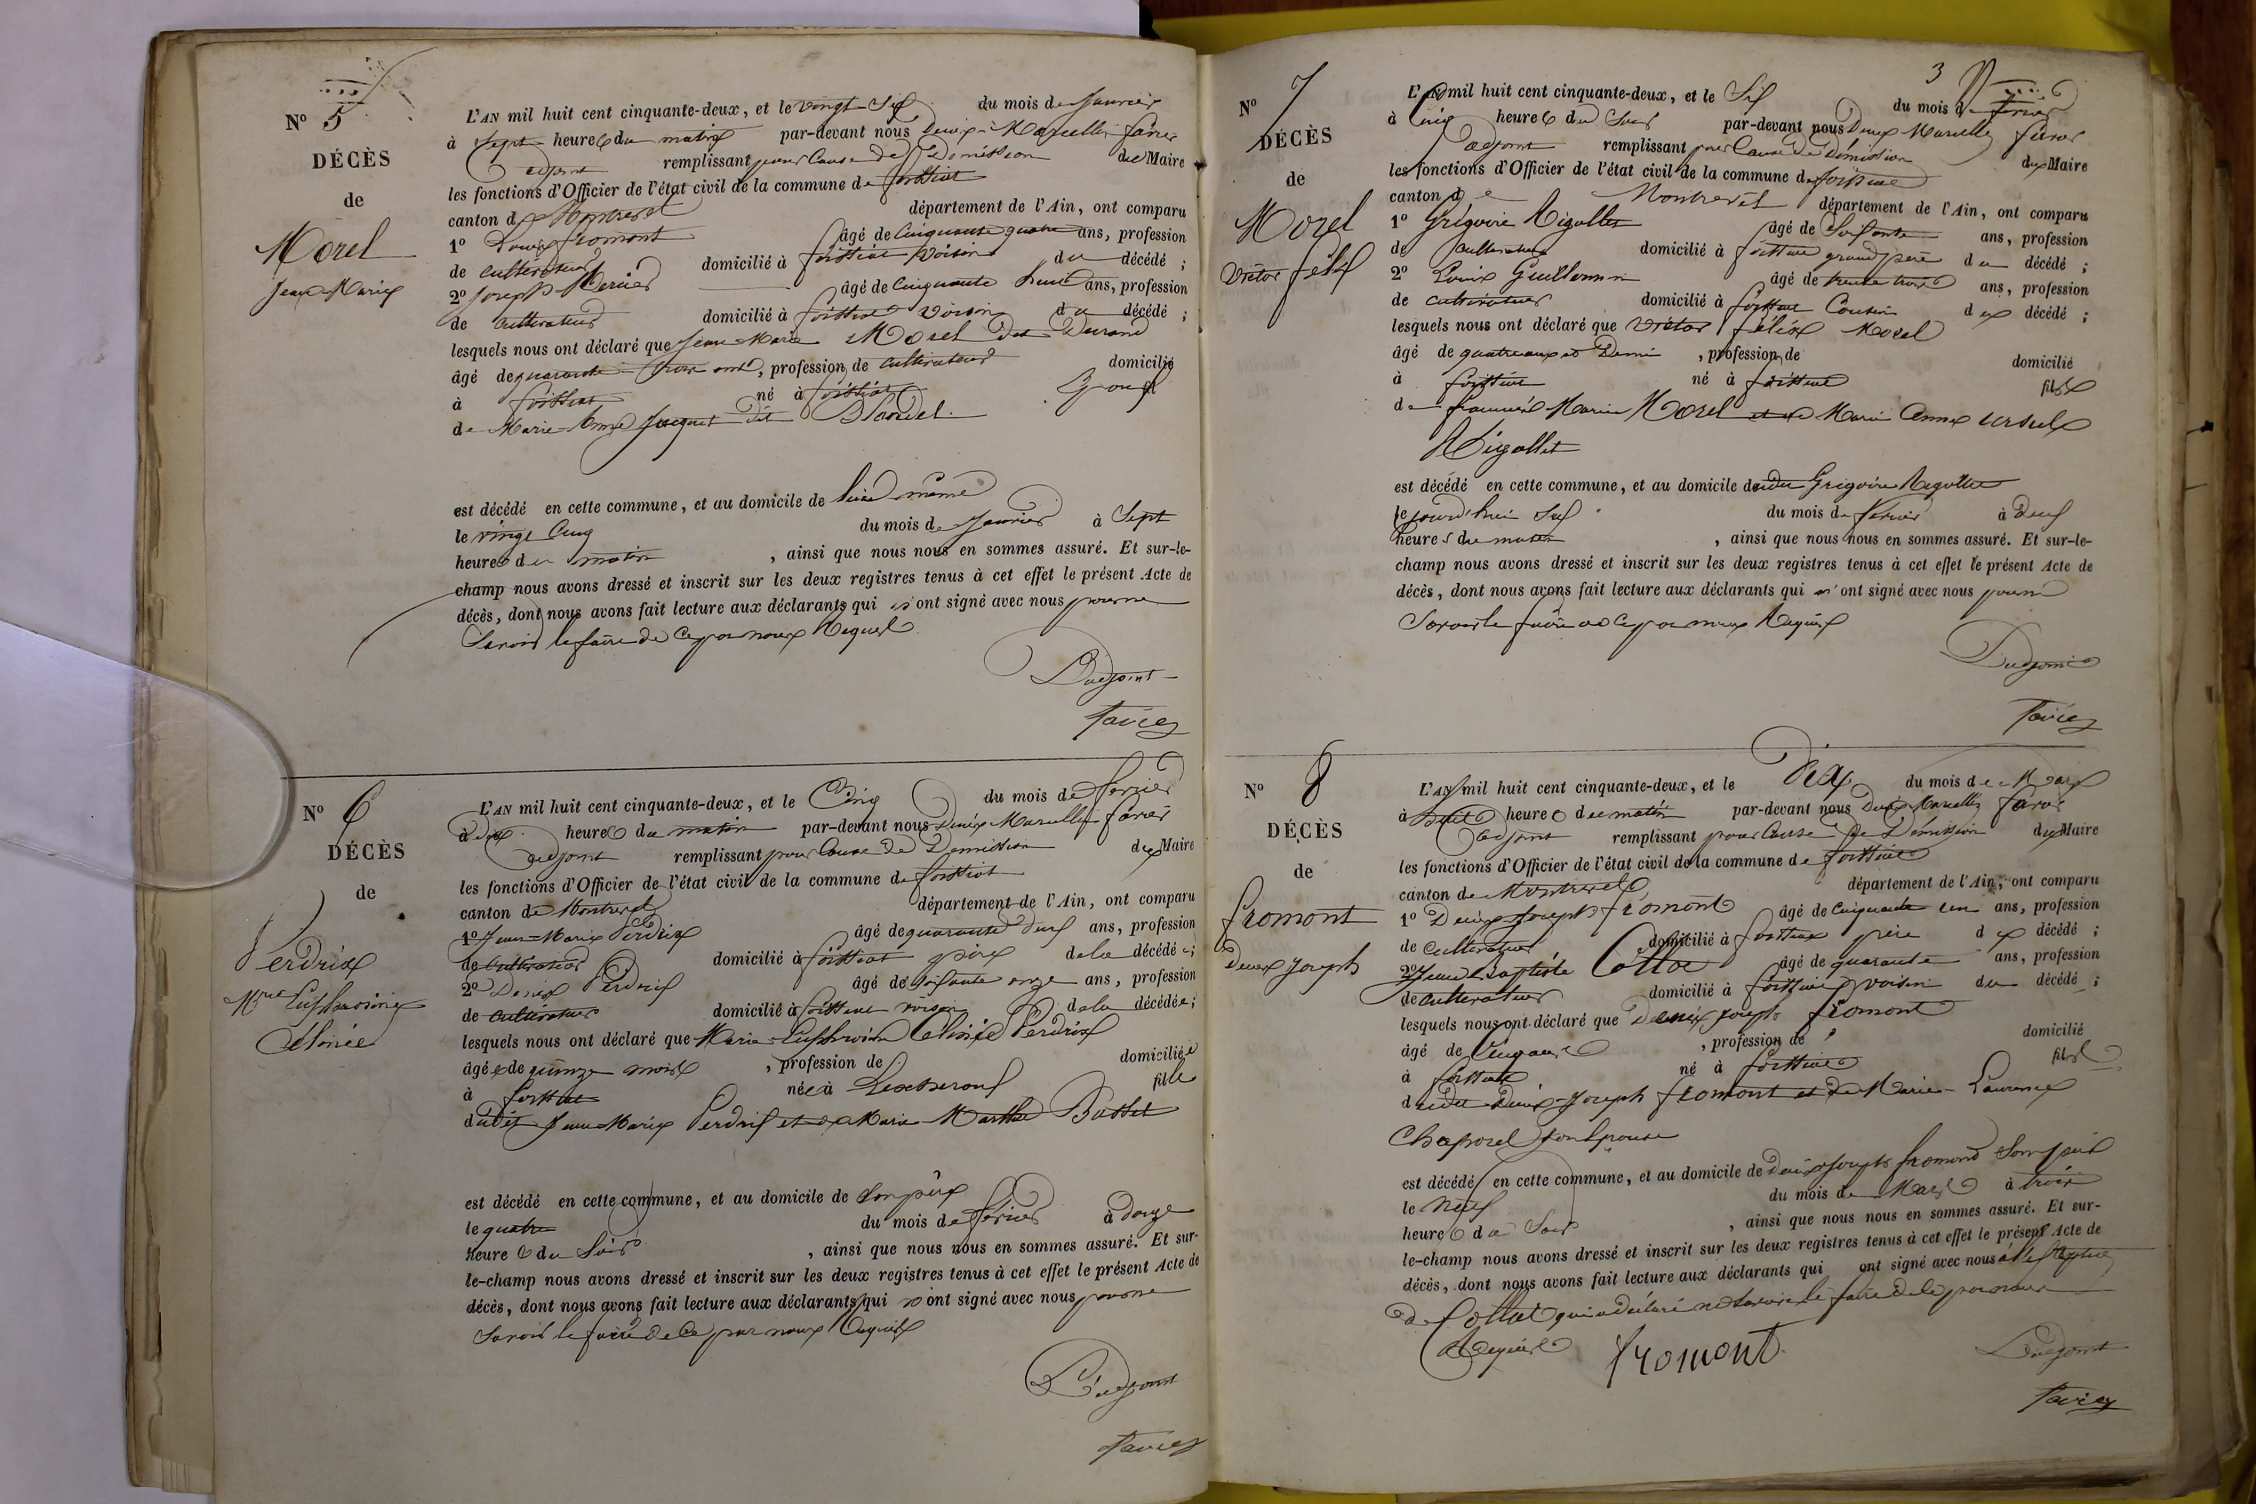 N° 5
DÉCÈS
de
Morel
Jean-Marie
L'AN mil huit cent cinquante-deux, et le vingt-six du mois de Janvier
à sept heures du matin par-devant nous Denis-Marcellin favier
adjoint remplissant pour Cause de Démission du Maire
les fonctions d'Officier de l'état civil de la commune de foissiat
canton de Montrevel département de l'Ain, ont comparu
1° fromont âgé de Cinquante quatre ans, profession
de cultivateur domicilié à foissiat voisin du décédé ;
2° Joseph Mercier âgé de Cinquante ans, profession
de cultivateur domicilié à foissiat voisin du décédé ;
lesquels nous ont déclaré que Jean-Marie Morel dit Durand
âgé de quarante trois ans, profession de cultivateur domicilié
à foissiat né à foissiat Epoux
de Marie-Anne Jacquet dit Blondel
est décédé en cette commune, et au domicile de lui même
le vingt Cinq du mois de Janvier à Sept
heures du matin , ainsi que nous nous en sommes assuré. Et sur-le-
champ nous avons dressé et inscrit sur les deux registres tenus à cet effet le présent Acte de
décès, dont nous avons fait lecture aux déclarants qui n'ont signé avec nous pour ne
Savoir le faire de Ce par nous Requis
L'adjoint
Favier
N° 6
DÉCÈS
de
Perdrix
Mrie Euphrosine
L'AN mil huit cent cinquante-deux, et le Cinq du mois de fevrier
à dix heures du matin par-devant nous Denis Marcellin favier
adjoint remplissant pour Cause de Demission du Maire
les fonctions d'Officier de l'état civil de la commune de foissiat
canton de Montrevel département de l'Ain, ont comparu
1° Jean-Marie Perdrix âgé de quarante deux ans, profession
de Cultivateur domicilié à foissiat père de la décédée ;
2° Denis Perdrix âgé de soixante onze ans, profession
de cultivateur domicilié à foissiat voisin de la décédée ;
lesquels nous ont déclaré que Marie-Euphrosine Perdrix
âgée de quinze mois , profession de domiciliée
à foissiat née à Lescheroux fille
dudit Jean-Marie Perdrix et de Marie Marthe Buttet
est décédé en cette commune, et au domicile de son père
le quatre du mois de fevrier à douze
heures du Soir , ainsi que nous nous en sommes assuré. Et sur-
le-champ nous avons dressé et inscrit sur les deux registres tenus à cet effet le présent Acte de
décès, dont nous avons fait lecture aux déclarants qui n'ont signé avec nous pour ne
Savoir le faire de Ce par nous Requis
L'adjoint
Favier
3
N° 7
DÉCÈS
de
Morel
Victor félix
L'AN mil huit cent cinquante-deux, et le Six du mois de fevrier
à Cinq heures du Soir par-devant nous Denis Marcellin favier
adjoint remplissant pour Cause de Démission du Maire
les fonctions d'Officier de l'état civil de la commune de foissiat
canton de Montrevel département de l'Ain, ont comparu
1° Grégoire Rigollet âgé de Soixante ans, profession
de cultivateur domicilié à foissiat grand père du décédé ;
2° Louis Guillemin âgé de trente trois ans, profession
de cultivateur domicilié à foissiat Cousin du décédé ;
lesquels nous ont déclaré que Victor félix Morel
âgé de quatre ans et Demi , profession de domicilié
à foissiat né à foissiat fils
de Marie Morel et de Marie Anne Ursule
Rigollet
est décédé en cette commune, et au domicile dudit Grégoire Rigollet
le jourd'hui Six du mois de fevrier à Deux
heures du matin , ainsi que nous nous en sommes assuré. Et sur-le-
champ nous avons dressé et inscrit sur les deux registres tenus à cet effet le présent Acte de
décès, dont nous avons fait lecture aux déclarants qui n'ont signé avec nous pour ne
Savoir le faire de Ce par nous Requis
L'adjoint
Favier
N° 8
DÉCÈS
de
fromont
Denis Joseph
L'AN mil huit cent cinquante-deux, et le Dix du mois de Mars
à sept heures du matin par-devant nous Denis Marcellin favier
adjoint remplissant pour Cause de Démission du Maire
les fonctions d'Officier de l'état civil de la commune de foissiat
canton de Montrevel département de l'Ain, ont comparu
1° Denis Joseph fromont âgé de Cinquante un ans, profession
de Cultivateur domicilié à foissiat père du décédé ;
2° Jean Baptiste Collat âgé de quarante ans, profession
de cultivateur domicilié à foissiat voisin du décédé ;
lesquels nous ont déclaré que Denis Joseph fromont
âgé de , profession de domicilié
à foissiat né à foissiat fils
dudit Denis-Joseph fromont et de Marie-Laurence
Chaporel son Epouse
est décédé en cette commune, et au domicile de Denis Joseph fromont Son père
le Neuf du mois de Mars à trois
heures du Soir , ainsi que nous nous en sommes assuré. Et sur-
le-champ nous avons dressé et inscrit sur les deux registres tenus à cet effet le présent Acte de
décès, dont nous avons fait lecture aux déclarants qui ont signé avec nous à l'exception
de Collat qui a déclaré ne Savoir le faire de Ce par nous
Requis
fromont
L'adjoint
Favier